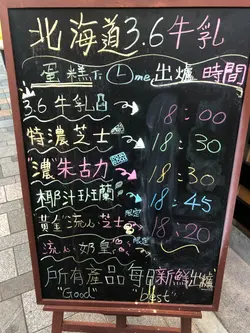 北海道3.6牛乳
蛋糕下L me出爐時間
3.6牛乳 18:00
特濃芝士 18:30
"濃"朱古力 18:30
椰汁班蘭 18:45
黃金流心芝士 限定 18:20
流心奶皇 限定
所有產品每日新鮮出爐
"Good" "best"